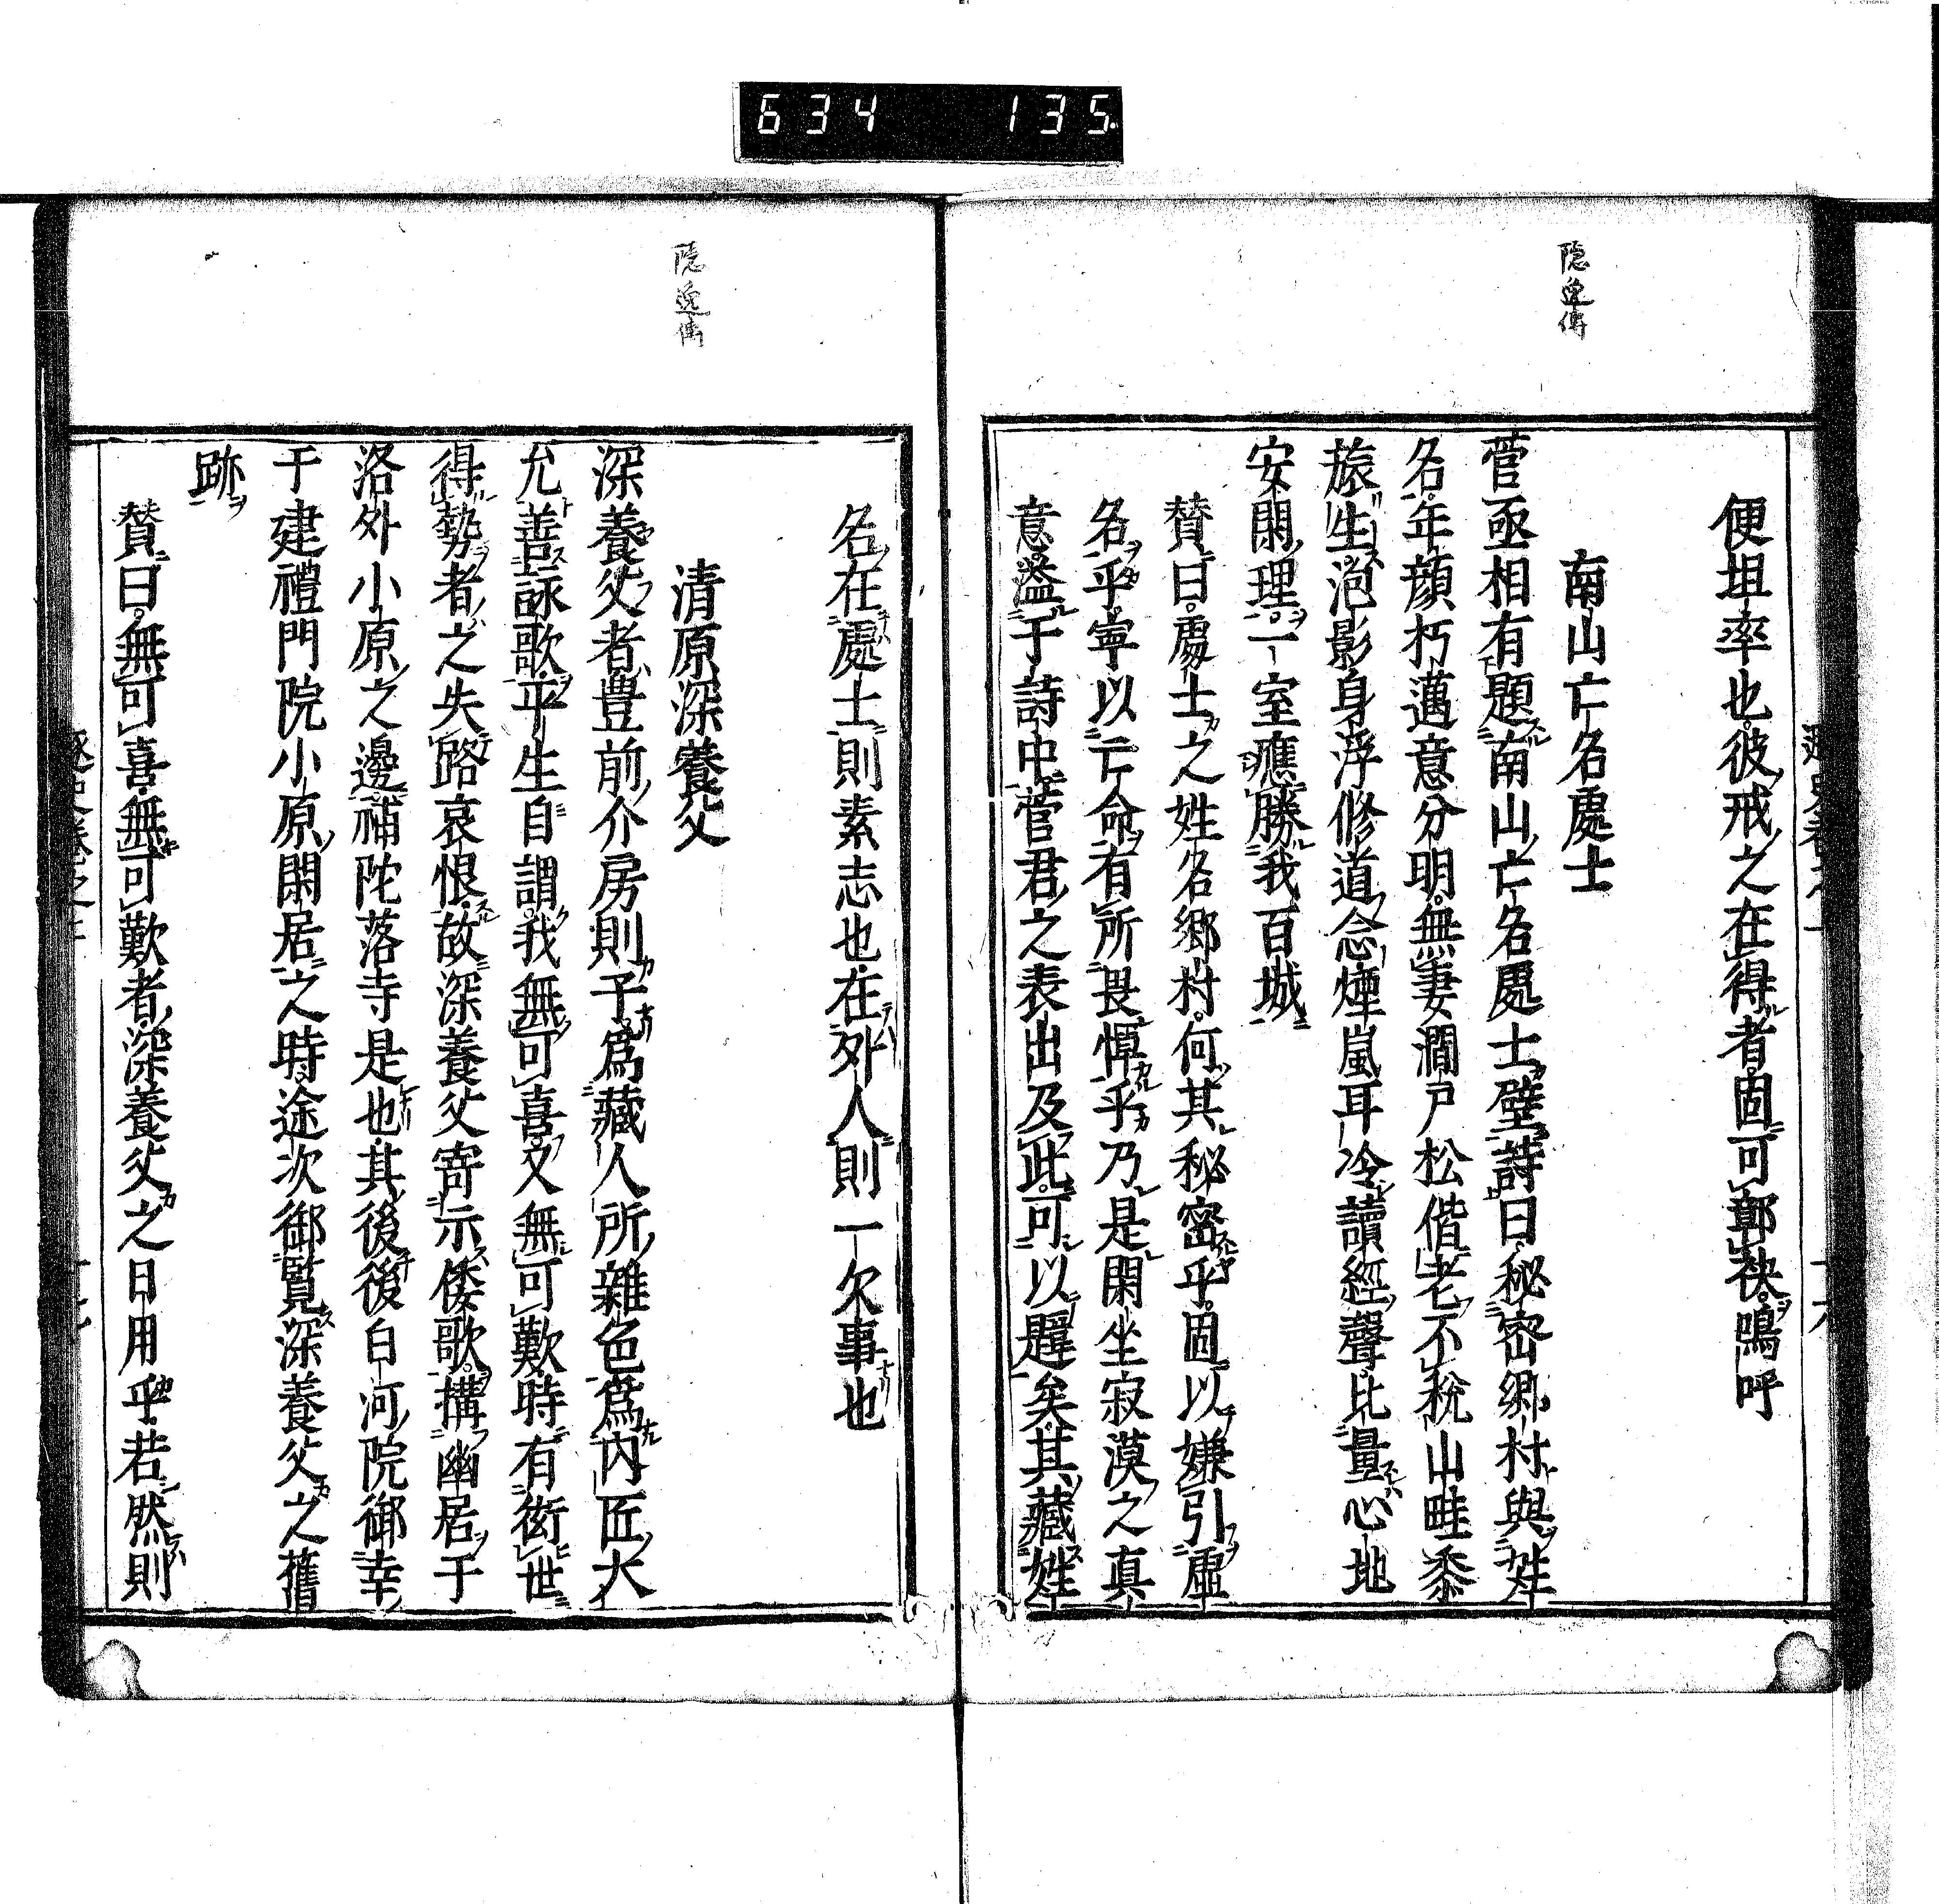 634 135
隠逸傳
便坦率也彼戒之在得者固可鄣袂鳴呼
南山亡名處士
菅丞相有題南山亡名處士壁詩曰秘密郷村與姓
名年顔朽邁意分明無妻澗戸松偕老不税山畦黍
旅生泡影身浮修道念煙嵐耳冷讀經聲比量心地
安閑理一室應勝我百城
賛曰處士之姓名郷村何其秘密乎固以嫌引虚
名乎寧以亡命有所畏憚乎乃是閑坐寂漠之真
意溢于詩中菅君之表出及此可以韙矣其藏姓
隠逸傳
名在處士則素志也在外人則一欠事也
清原深養父
深養父者豊前介房則子爲藏人所雜色爲内匠大
允善詠歌平生自謂我無可喜又無可歎時有衒世
得勢者之失路哀恨故深養父寄示倭歌搆幽居于
洛外小原之邊補陀落寺是也其後後白河院御幸
于建禮門院小原閑居之時途次御覧深養父之舊
跡
賛曰無可喜無可歎者深養父之日用乎若然則